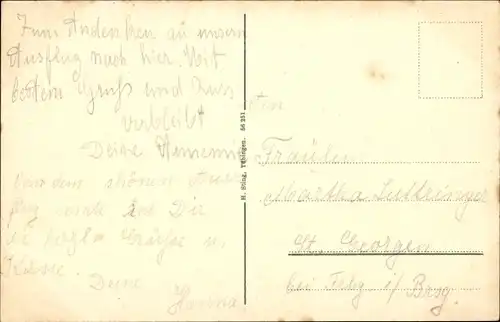 Zum Andenken an unsern
Ausflug nach hier. Mit
bestem Gruß und Kuss
verbleibt
Deine
Von dem schönen
sende ich Dir
die herzl. Grüsse u.
Küsse.
Deine
Hanna
H. Sting, Tübingen. 56 251
An
Fräulein
Martha Lutteringer
St. Georgen
bei Fbrg i/ Brsg.